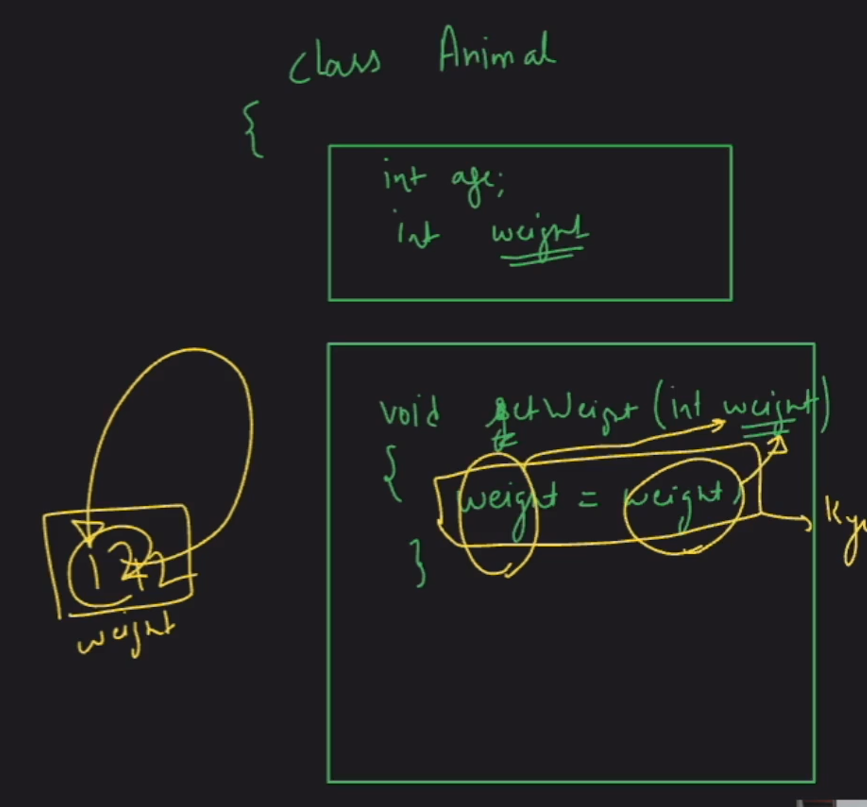 class Animal
{
int age;
int weight
void setWeight (int weight)
{
weight = weight;
}
weight